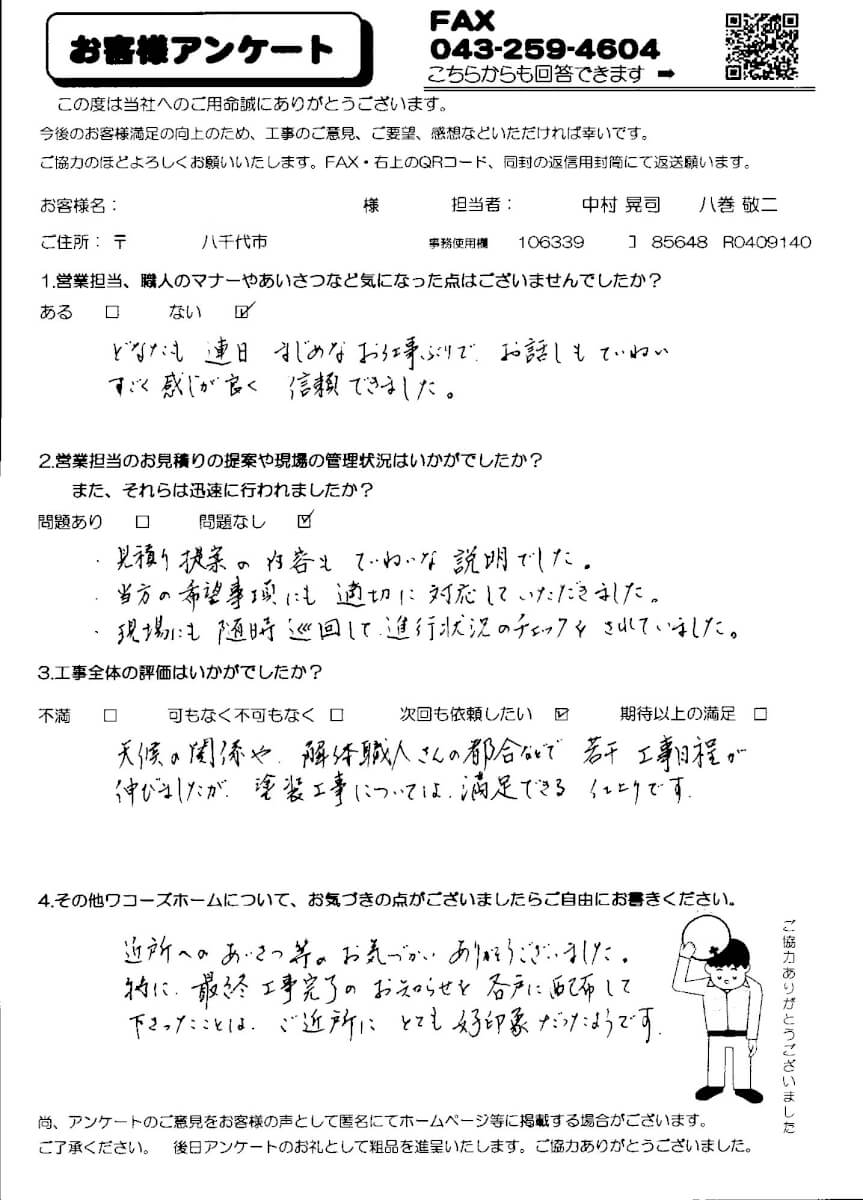 お客様アンケート
FAX
043-259-4604
こちらからも回答できます ➡
この度は当社へのご用命誠にありがとうございます。
今後のお客様満足の向上のため、工事のご意見、ご要望、感想などいただければ幸いです。
ご協力のほどよろしくお願いいたします。FAX・右上のQRコード、同封の返信用封筒にて返送願います。
お客様名： 様 担当者： 中村 晃司 八巻 敬二
ご住所：〒 八千代市 事務使用欄 106339 コ 85648 R0409140
1.営業担当、職人のマナーやあいさつなど気になった点はございませんでしたか？
ある □ ない ☑
どなたも 連日 まじめな お仕事ぶりで、お話しも ていねい
すごく 感じが良く 信頼できました。
2.営業担当のお見積りの提案や現場の管理状況はいかがでしたか？
また、それらは迅速に行われましたか？
問題あり □ 問題なし ☑
・見積り提案の内容も ていねいな 説明でした。
・当方の希望事項にも 適切に 対応していただきました。
・現場にも 随時 巡回して、進行状況のチェックを されていました。
3.工事全体の評価はいかがでしたか？
不満 □ 可もなく不可もなく □ 次回も依頼したい ☑ 期待以上の満足 □
天候の関係や、解体職人さんの都合などで 若干 工事日程が
伸びましたが、塗装工事については、満足できる 仕上りです。
4.その他ワコーズホームについて、お気づきの点がございましたらご自由にお書きください。
近所への あいさつ等の お気づかい ありがとうございました。
特に、最終 工事完了の お知らせを 各戸に配布して
下さったことは、ご近所に とても 好印象だったようです。
ご協力ありがとうございました
尚、アンケートのご意見をお客様の声として匿名にてホームページ等に掲載する場合がございます。
ご了承ください。 後日アンケートのお礼として粗品を進呈いたします。ご協力ありがとうございました。